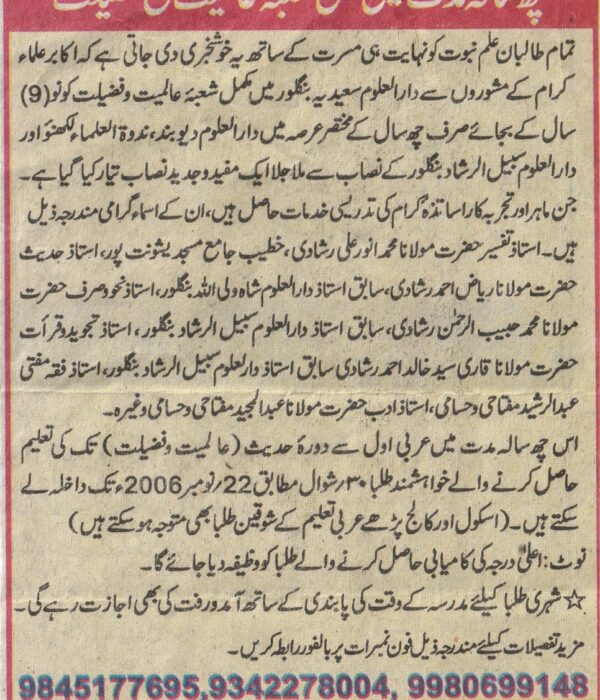 تمام طالبان علم نبوت کو نہایت ہی مسرت کے ساتھ یہ خوشخبری دی جاتی ہے کہ اکابر علماء
کرام کے مشوروں سے دارالعلوم سعیدیہ بنگلور میں مکمل شعبۂ عالمیت و فضیلت کو نو (9)
سال کے بجائے صرف چھ سال کے مختصر عرصہ میں دارالعلوم دیوبند، ندوۃ العلماء لکھنؤ اور
دارالعلوم سبیل الرشاد بنگلور کے نصاب سے ملا جلا ایک مفید و جدید نصاب تیار کیا گیا ہے۔
جن ماہر اور تجربہ کار اساتذۂ کرام کی تدریسی خدمات حاصل ہیں، ان کے اسماء گرامی مندرجہ ذیل
ہیں۔ استاذ تفسیر حضرت مولانا محمد انور علی رشادی، خطیب جامع مسجد یشونت پور، استاذ حدیث
حضرت مولانا ریاض احمد رشادی، سابق استاذ دارالعلوم شاہ ولی اللہ بنگلور، استاذ نحو و صرف حضرت
مولانا محمد حبیب الرحمٰن رشادی، سابق استاذ دارالعلوم سبیل الرشاد بنگلور، استاذ تجوید و قرأت
حضرت مولانا قاری سید خالد احمد رشادی سابق استاذ دارالعلوم سبیل الرشاد بنگلور، استاذ فقہ مفتی
عبدالرشید مفتاحی و حسامی، استاذ ادب حضرت مولانا عبدالمجید مفتاحی و حسامی وغیرہ۔
اس چھ سالہ مدت میں عربی اول سے دورۂ حدیث (عالمیت و فضیلت) تک کی تعلیم
حاصل کرنے والے خواہشمند طلبا ۳۰؍شوال مطابق 22؍نومبر 2006ء تک داخلہ لے
سکتے ہیں۔ (اسکول اور کالج پڑھے عربی تعلیم کے شوقین طلبا بھی متوجہ ہو سکتے ہیں)
نوٹ: اعلیٰ درجہ کی کامیابی حاصل کرنے والے طلبا کو وظیفہ دیا جائے گا۔
☆ شہری طلبا کیلئے مدرسہ کے وقت کی پابندی کے ساتھ آمدورفت کی بھی اجازت رہے گی۔
مزید تفصیلات کیلئے مندرجہ ذیل فون نمبرات پر بالفور رابطہ کریں۔
9845177695,9342278004, 9980699148